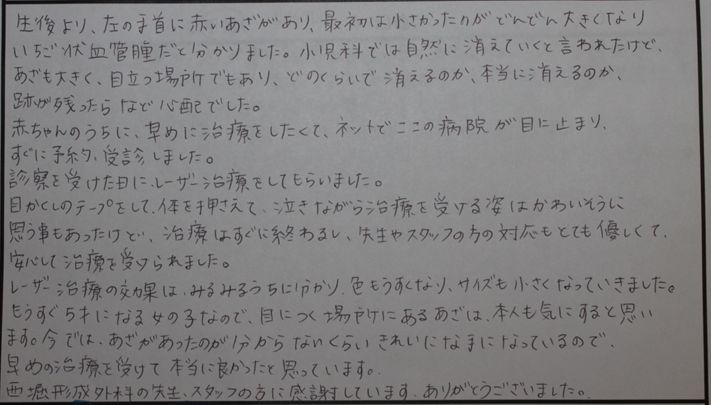 生後より、左の手首に赤いあざがあり、最初は小さかったのがどんどん大きくなり
いちご状血管腫だと分かりました。小児科では自然に消えていくと言われたけど、
あざも大きく、目立つ場所でもあり、どのくらいで消えるのか、本当に消えるのか、
跡が残ったらなど心配でした。
赤ちゃんのうちに、早めに治療をしたくて、ネットでここの病院が目に止まり、
すぐに予約、受診しました。
診察を受けた日に、レーザー治療をしてもらいました。
目かくしのテープをして、体を押さえて、泣きながら治療を受ける姿はかわいそうに
思う事もあったけど、治療はすぐに終わるし、先生やスタッフの方の対応もとても優しくて、
安心して治療を受けられました。
レーザー治療の効果は、みるみるうちに分かり、色もうすくなり、サイズも小さくなっていきました。
もうすぐ5才になる女の子なので、目につく場所にあるあざは、本人も気にすると思い
ます。今では、あざがあったのが分からないくらいきれいな手になっているので、
早めの治療を受けて本当に良かったと思っています。
西堀形成外科の先生、スタッフの方に感謝しています。ありがとうございました。